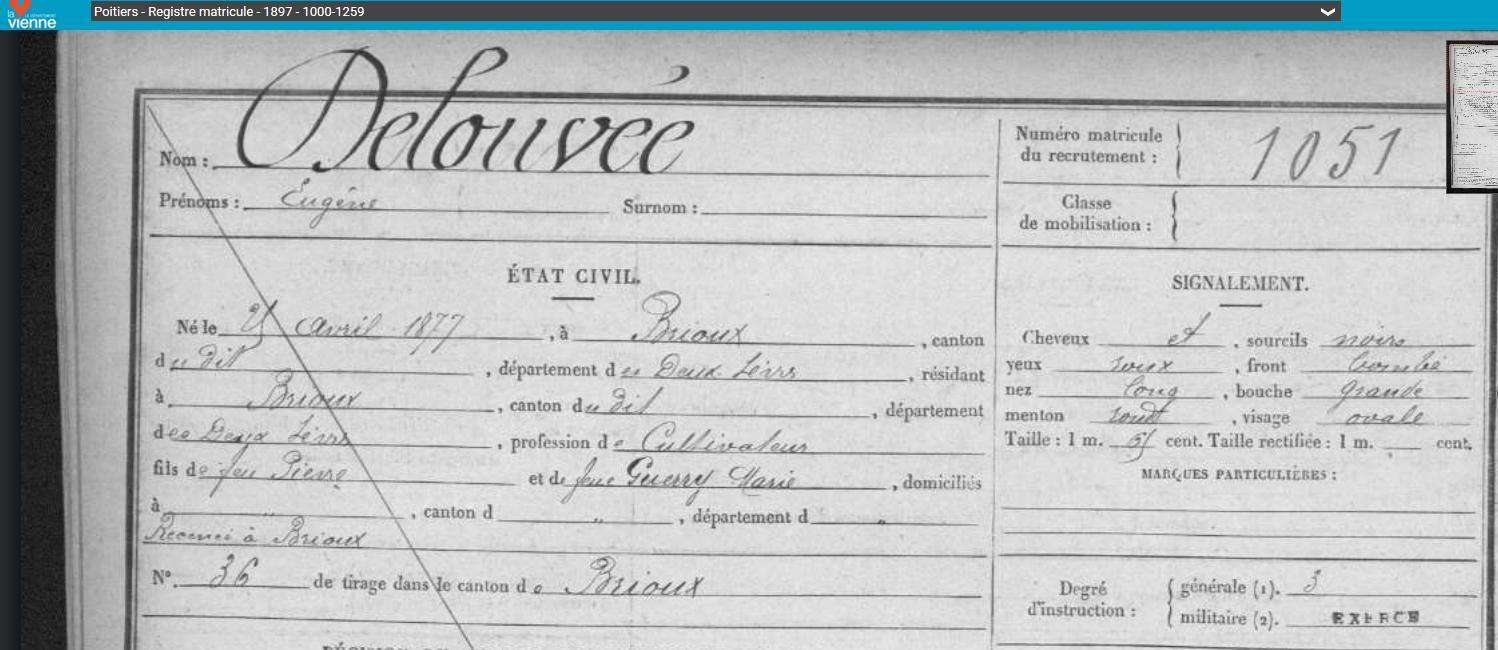 la vienne
Poitiers - Registre matricule - 1897 - 1000-1259
Nom : Delouvée
Prénoms : Eugène Surnom :
Numéro matricule du recrutement : 1051
Classe de mobilisation :
ÉTAT CIVIL.
Né le avril 1877, à Brioux, canton
du dit, département des Deux Sèvres, résidant
à Brioux, canton du dit, département
des Deux Sèvres, profession de Cultivateur
fils de feu Pierre et de feue Guerry Marie, domiciliés
à „, canton d „, département d „
Recensé à Brioux
N° 36 de tirage dans le canton de Brioux
SIGNALEMENT.
Cheveux et, sourcils noirs
yeux roux, front bombé
nez long, bouche grande
menton rond, visage ovale
Taille : 1 m. cent. Taille rectifiée : 1 m. cent.
MARQUES PARTICULIÈRES :
Degré d'instruction : générale (1). 3
militaire (2). EXERCÉ